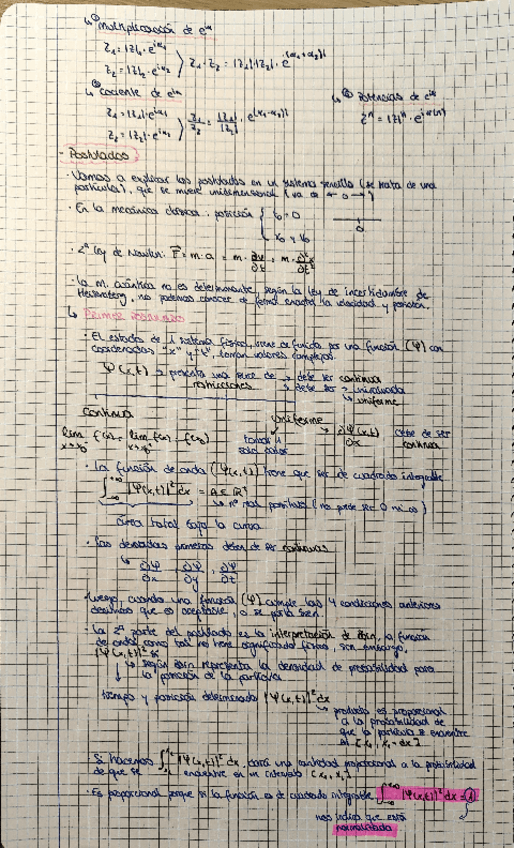 ↳ multiplicación de e^iα
Z₁ = |Z|₁ · e^iα₁
Z₂ = |Z|₂ · e^iα₂
Z₁ · Z₂ = |Z₁| |Z₂| · e^(α₁+α₂)i
↳ cociente de e^iα
Z₁ = |Z₁| · e^iα₁
Z₂ = |Z₂| · e^iα₂
Z₁/Z₂ = |Z₁|/|Z₂| · e^(α₁-α₂)i
↳ Potencias de e^iα
Zⁿ = |Z|ⁿ · e^iα(n)
- Postulados
· Vamos a explicar los postulados en un sistema sencillo (se trata de una
partícula), que se mueve unidimensional
· En la mecánica clásica: posición
t₀ = 0
x₀ y v₀
0
· 2ª Ley de Newton: F = m · a = m · ∂v/∂t = m · ∂²x/∂t²
· La m. cuántica no es determinante, según la ley de incertidumbre de
Heisenberg, no podemos conocer de forma exacta la velocidad y posición.
↳ Primer postulado
· El estado de 1 sistema físico, viene definido por una función (Ψ) con
coordenadas "x" y "t", toman valores complejos.
Ψ(x,t) → presenta una serie de → debe ser continua
restricciones → debe ser univaluada
↳ uniforme
Continua
lim f(x) = lim f(x) = f(x₀)
uniforme
tomar 1
solo valor
∂Ψ(x,t)/∂x debe de ser
continua
· La función de onda (Ψ(x,t)) tiene que ser de cuadrado integrable
∫ |Ψ(x,t)|² dx = A ∈ R⁺
↳ nº real positivo (no puede ser 0 ni ∞)
área total bajo la curva
· Las derivadas primeras deben de ser continuas
↳ ∂Ψ/∂x , ∂Ψ/∂y , ∂Ψ/∂t
· Luego, cuando una función (Ψ) cumple las 4 condiciones anteriores
decimos que es aceptable, o se porta bien
· La 2ª parte del postulado es la interpretación de Born, la función
de onda como tal no tiene significado físico, sin embargo,
|Ψ(x,t)|² sí
↳ según Born representa la densidad de probabilidad para
la posición de la partícula
tiempo y posición determinado |Ψ(x,t)|² dx
↳ producto es proporcional
a la probabilidad de
que la partícula se encuentre
en [x₁, x₁+dx]
Si hacemos ∫ |Ψ(x,t)|² dx, dará una cantidad proporcional a la probabilidad
de que se encuentre en un intervalo [x₀, x₁]
· Es proporcional porque si la función es de cuadrado integrable, ∫ |Ψ(x,t)|² dx = 1
nos indica que está
normalizada